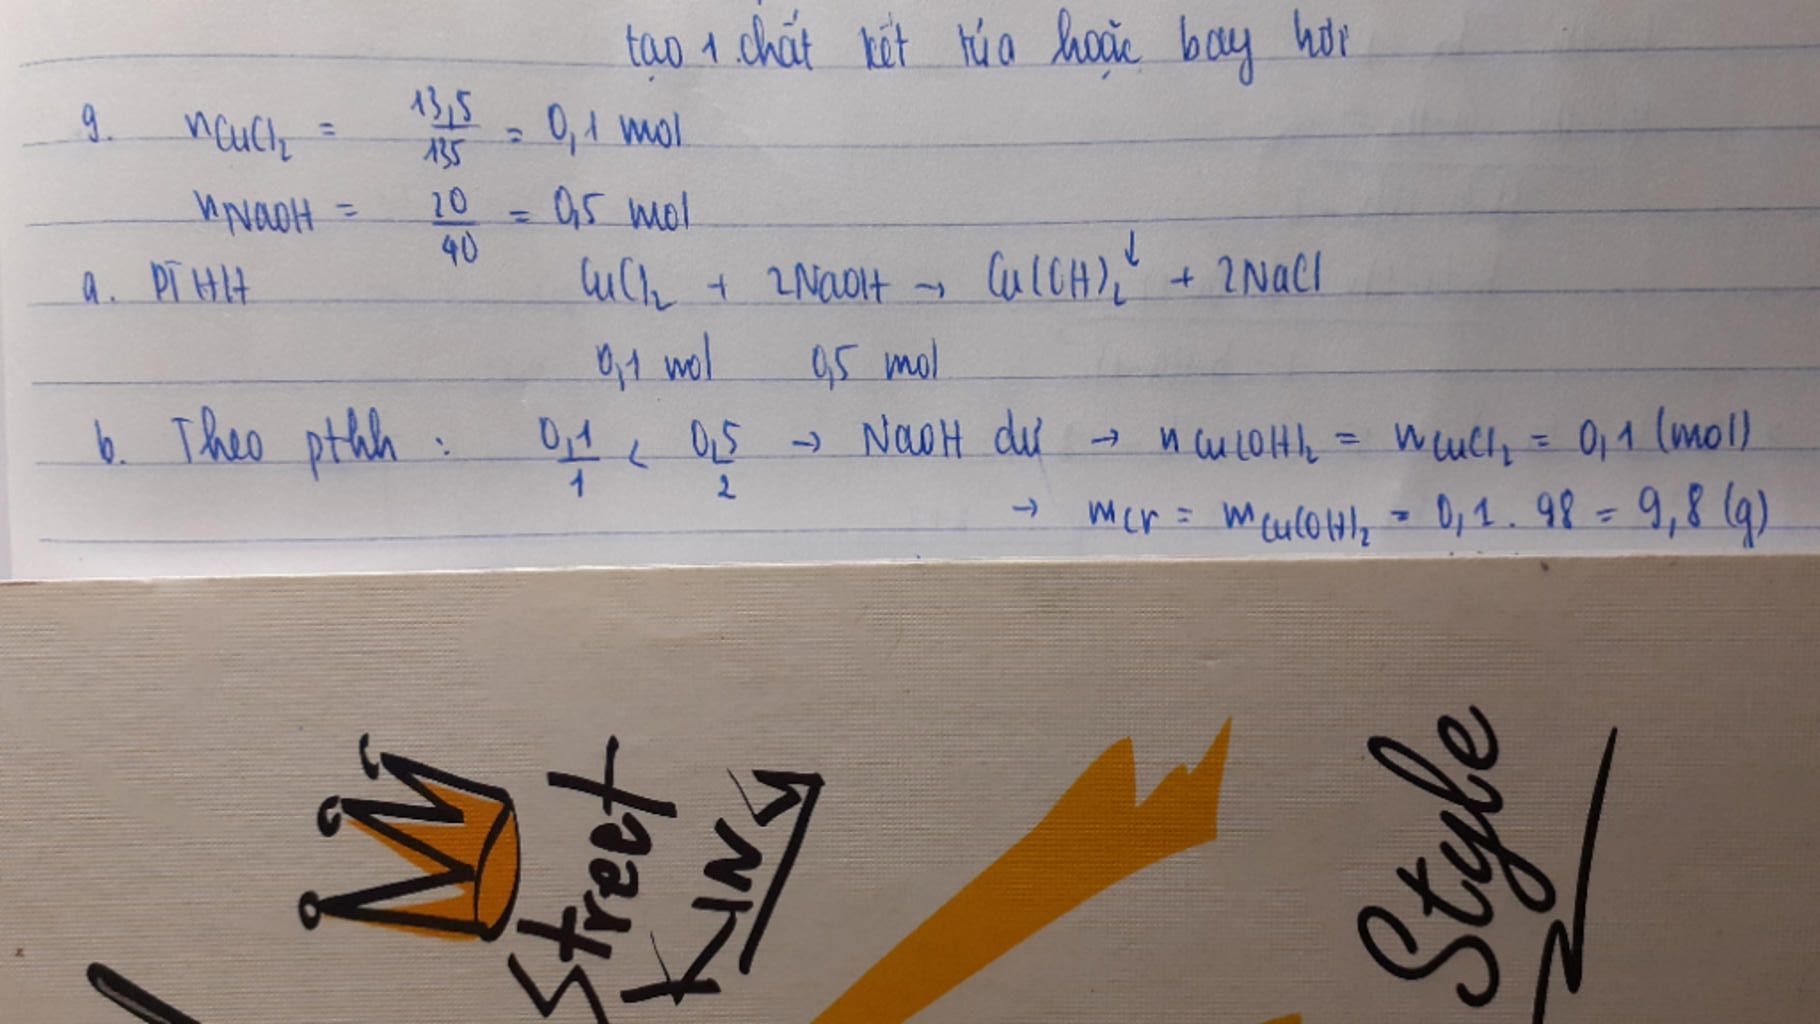 tạo 1 chất kết tủa hoặc bay hơi
9. nCuCl₂ = 13,5/135 = 0,1 mol
nNaOH = 20/40 = 0,5 mol
a. PTHH CuCl₂ + 2NaOH → Cu(OH)₂↓ + 2NaCl
0,1 mol 0,5 mol
b. Theo pthh : 0,1/1 < 0,5/2 → NaOH dư → nCu(OH)₂ = nCuCl₂ = 0,1 (mol)
→ mcr = mCu(OH)₂ = 0,1 . 98 = 9,8 (g)
Street
KING
Style